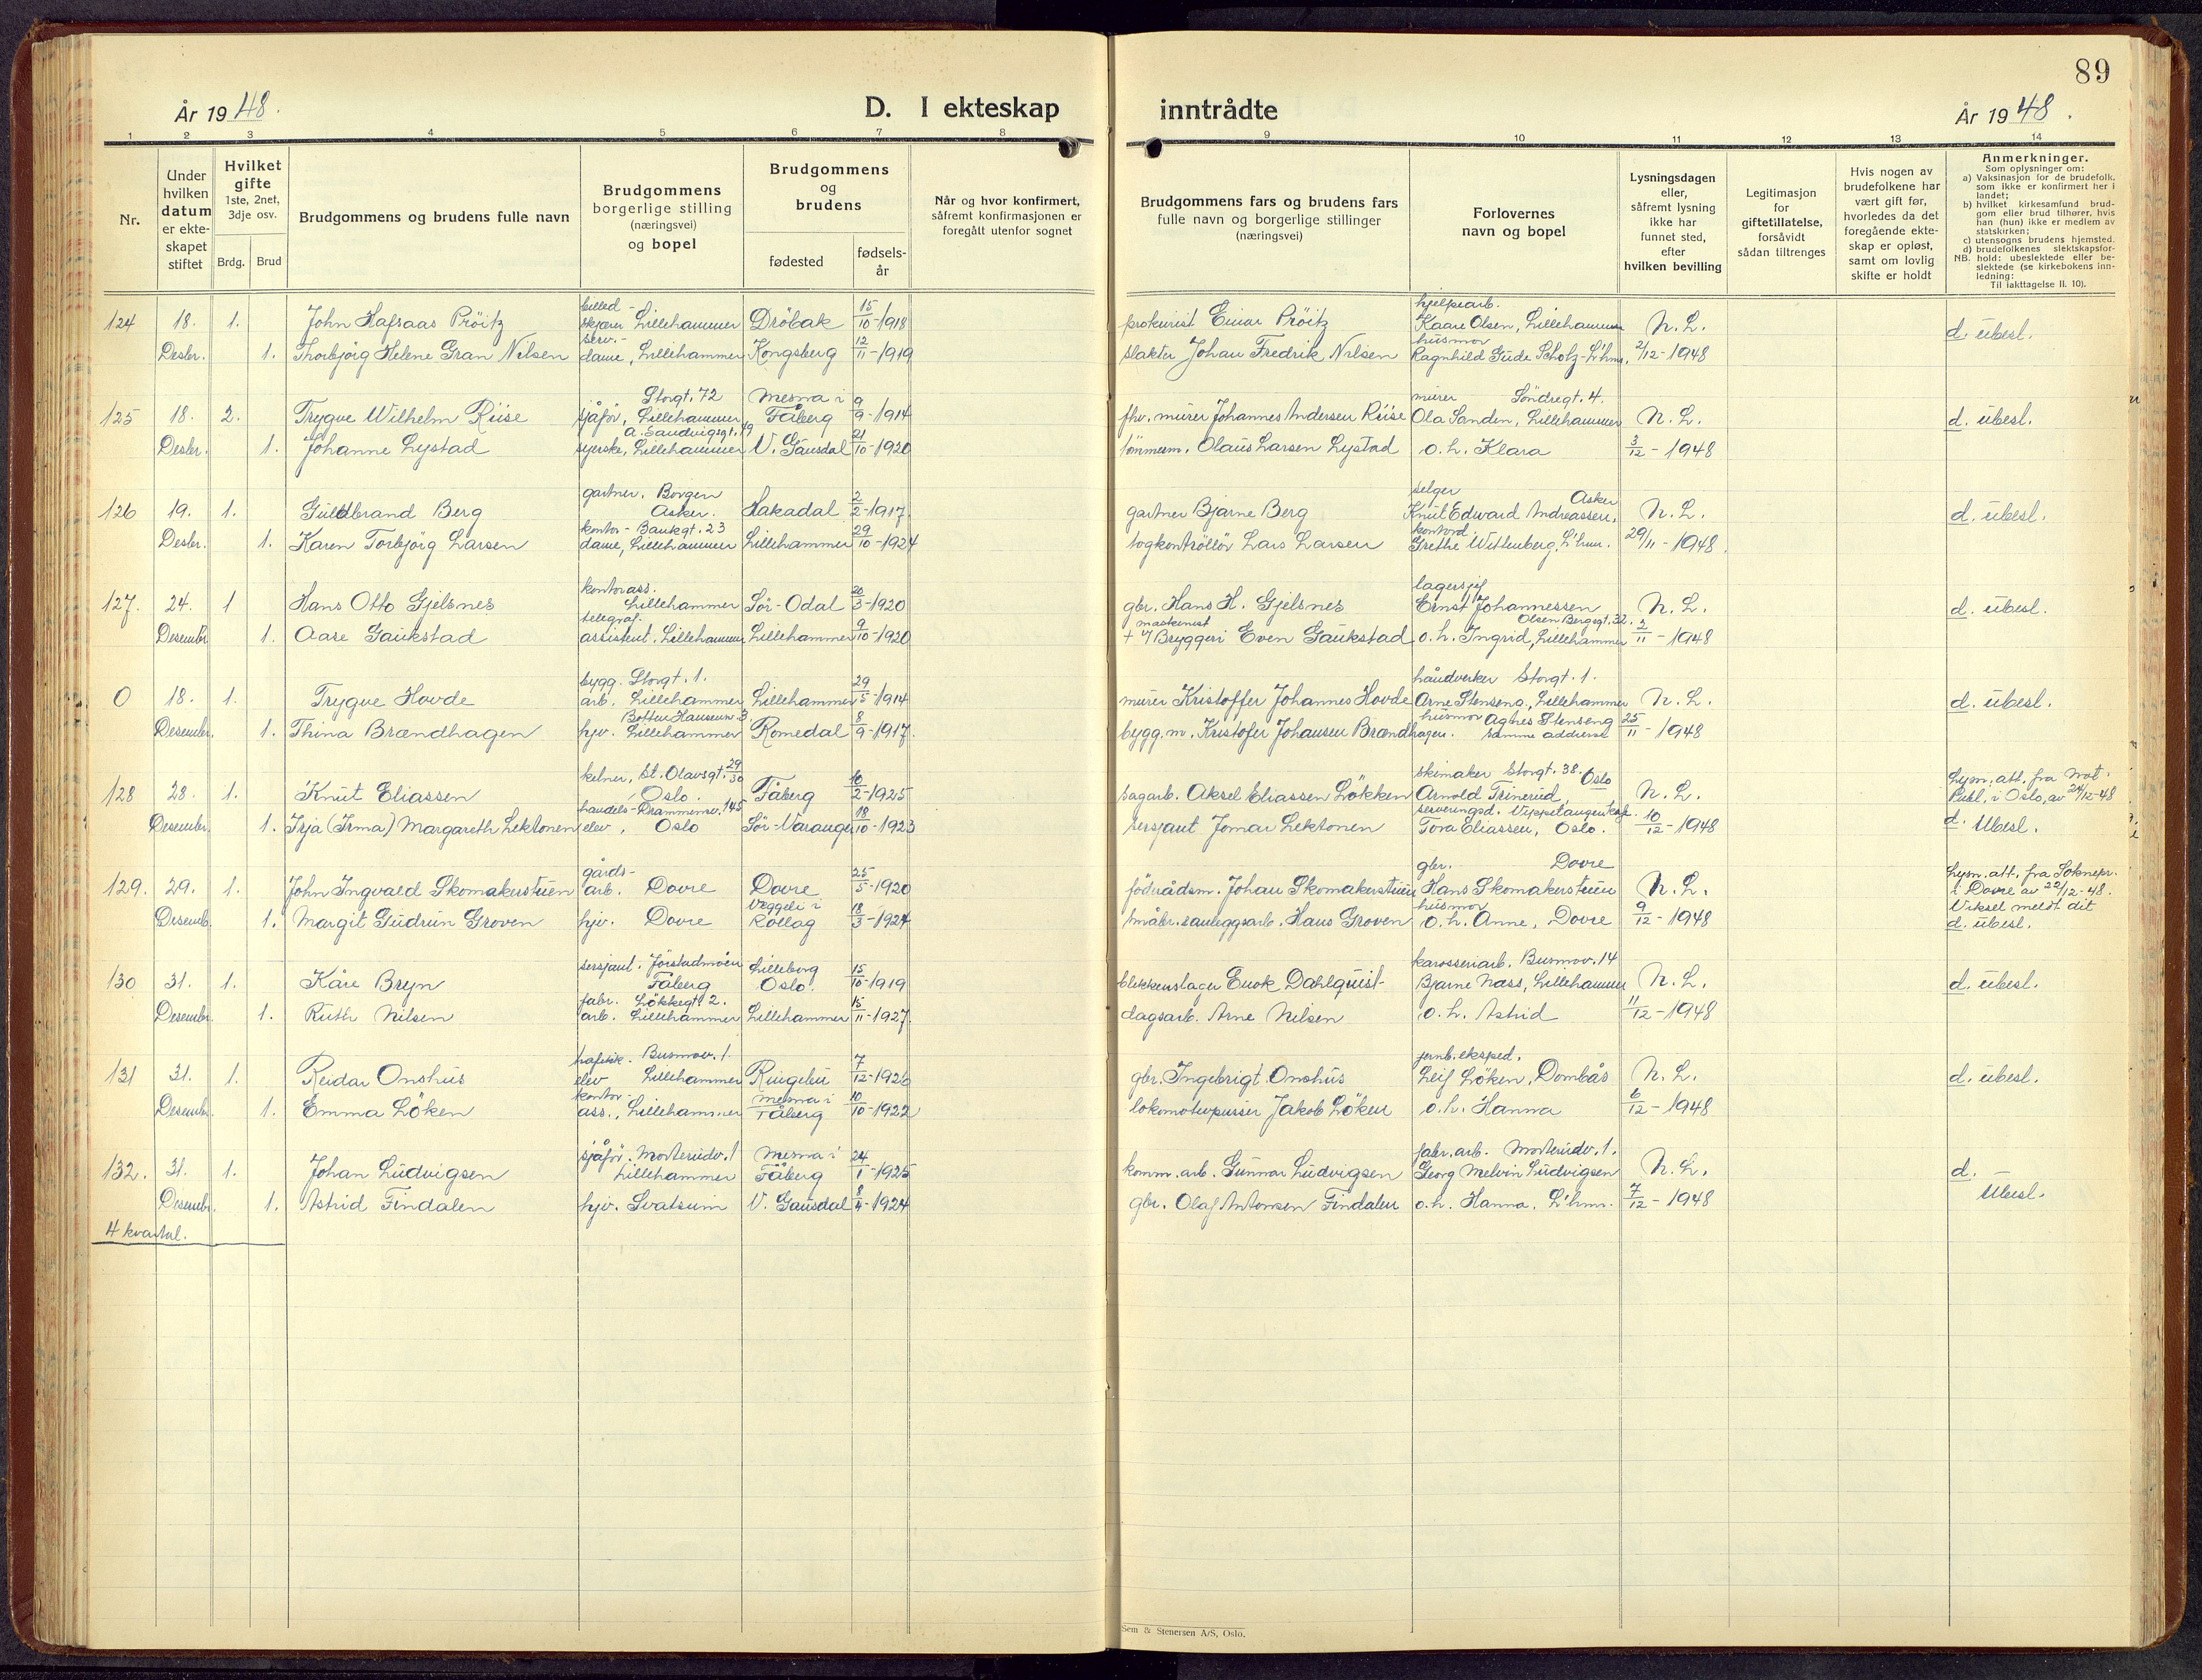 89
År 1948.
D. I ekteskap inntrådte
År 1948.
1 2 3 4 5 6 7 8 9 10 11 12 13 14
Nr.
Under hvilken datum er ekte-skapet stiftet
Hvilket gifte 1ste, 2net, 3dje osv.
Brdg. Brud
Brudgommens og brudens fulle navn
Brudgommens borgerlige stilling (næringsvei) og bopel
Brudgommens og brudens
fødested
fødsels-år
Når og hvor konfirmert, såfremt konfirmasjonen er foregått utenfor sognet
Brudgommens fars og brudens fars fulle navn og borgerlige stillinger (næringsvei)
Forlovernes navn og bopel
Lysningsdagen eller, såfremt lysning ikke har funnet sted, efter hvilken bevilling
Legitimasjon for giftetillatelse, forsåvidt sådan tiltrenges
Hvis nogen av brudefolkene har vært gift før, hvorledes da det foregående ekte-skap er opløst, samt om lovlig skifte er holdt
Anmerkninger.
Som oplysninger om:
a) Vaksinasjon for de brudefolk, som ikke er konfirmert her i landet;
b) hvilket kirkesamfund brud-gom eller brud tilhører, hvis han (hun) ikke er medlem av statskirken;
c) utensogns brudens hjemsted.
d) brudefolkenes slektskapsfor-
NB. hold: ubeslektede eller be-slektede (se kirkebokens inn-ledning: Til iakttagelse II. 10).
124 18. 1. John Hafsaas Pröitz billed-skjærer Lillehammer Dröbak 15/10-1918 prokurist Einar Pröitz hjelpearb. Kaare Olsen, Lillehammer N. L. d. übesl.
Desbr. 1. Thorbjörg Helene Gran Nilsen serv.-dame, Lillehammer Kongsberg 12/11-1919 slakter Johan Fredrik Nilsen husmor Ragnhild Gude Scholz-L'hmr. 2/12-1948
125 18. 2. Trygve Wilhelm Riise Storgt. 72 sjåfør, Lillehammer Mesna i Fåberg 9/9-1914 fhv. murer Johannes Andersen Riise murer Söndregt. 4. Ola Sanden, Lillehammer N. L. d. übesl.
Desbr. 1. Johanne Lystad A. Sandvigsgt. 49 syerske, Lillehammer V. Gausdal 21/10-1920 tömmerm. Olaus Larsen Lystad o. h. Klara 3/12-1948
126 19. 1. Guldbrand Berg gartner. Borgen Asker. Hakadal 2/2-1917. gartner Bjarne Berg selger Asker Knut Edward Andreassen, N. L. d. übesl.
Desbr. 1. Karen Torbjörg Larsen kontor-Bankgt. 23 dame, Lillehammer Lillehammer 29/10-1924 togkontrollör Lars Larsen kontord. Grethe Wittenberg, L'hmr. 29/11-1948.
127. 24. 1 Hans Otto Gjelsnes kontorass. Lillehammer Sör-Odal 20/3-1920 gbr. Hans H. Gjelsnes lagersjef Ernst Johannessen N. L. d. übesl.
Desembr 1. Aase Gaukstad telegraf. assistent. Lillehammer Lillehammer 9/10-1920 + maskinist v/ Bryggeri Even Gaukstad Olsen Bergsgt. 32. o. h. Ingrid, Lillehammer 2/11-1948
0 18. 1. Trygve Hovde bygg. Storgt. 1. arb. Lillehammer Lillehammer 29/5-1914 murer Kristoffer Johannes Hovde håndverker Storgt. 1. Arne Stenseng, Lillehammer N. L. d. übesl.
Desember. 1. Thina Brændhagen Botten Hansensv. 3. hjv. Lillehammer Romedal 8/9-1917. bygg.m. Kristofer Johansen Brændhagen. husmor Agnes Stenseng samme addresse 25/11-1948
128 28. 1. Knut Eliassen kelner, St. Olavsgt. 29/30 Oslo. Fåberg 10/2-1925 sagarb. Aksel Eliassen Lökken skimaker Storgt. 38. Oslo Arnold Trinerud N. L. Lysn. att. fra Not. Publ. i Oslo, av 24/12-48
Desember. 1. Irja (Irma) Margareth Lektonen handels-Drammensv. 145 elev, Oslo Sör-Varanger 18/10-1923 sersjant Jomar Lektonen serveringsd. Vippetangen Kafe. Tora Eliassen, Oslo. 10/12-1948 d. Ubesl.
129. 29. 1. John Ingvald Skomakerstuen gårds-arb. Dovre Dovre 25/5-1920 födrådsm. Johan Skomakerstuen gbr. Dovre Hans Skomakerstuen N. L. Lysn. att. fra Soknepr. i Dovre av 22/12-48. Viksel meldt dit
Desemb. 1. Margit Gudrun Groven hjv. Dovre Veggeli i Rollag 18/3-1924 småbr. & anleggsarb. Hans Groven husmor o. h. Anne, Dovre 9/12-1948 d. übesl.
130 31. 1. Kåre Bryn sersjant. Jörstadmoen Fåberg Lilleborg Oslo. 15/10-1919 blikkenslager Enok Dahlquist- karosseriarb. Busmov. 14 Bjarne Næss, Lillehammer N. L. d. übesl.
Desember. 1. Ruth Nilsen fabr. Lökkegt. 2. arb. Lillehammer Lillehammer 15/11-1927. dagsarb. Arne Nilsen o. h. Astrid 11/12-1948
131 31. 1. Reidar Onshus trafikk. Busmov. 1. elev Lillehammer Ringebu 7/12-1926 gbr. Ingebrigt Onshus jernb. eksped. Leif Löken, Dombås N. L. d. übesl.
Desemb. 1. Emma Löken kontor-ass., Lillehammer Mesna i Fåberg 10/10-1922 lokomotivpusser Jakob Löken o. h. Hanna 6/12-1948
132. 31. 1. Johan Ludvigsen sjåför. Morterudv. 1 Lillehammer Mesna i Fåberg 24/1-1925 komm. arb. Gunnar Ludvigsen fabr. arb. Morterudv. 1. Georg Melvin Ludvigsen N. L. d. Ubesl.
Desembr. 1. Astrid Findalen hjv. Svatsum V. Gausdal 8/4-1924 gbr. Olaf Antonsen Findalen o. h. Hanna. L'hmr. 7/12-1948
4 kvartal.
Sem & Stenersen A/S, Oslo.